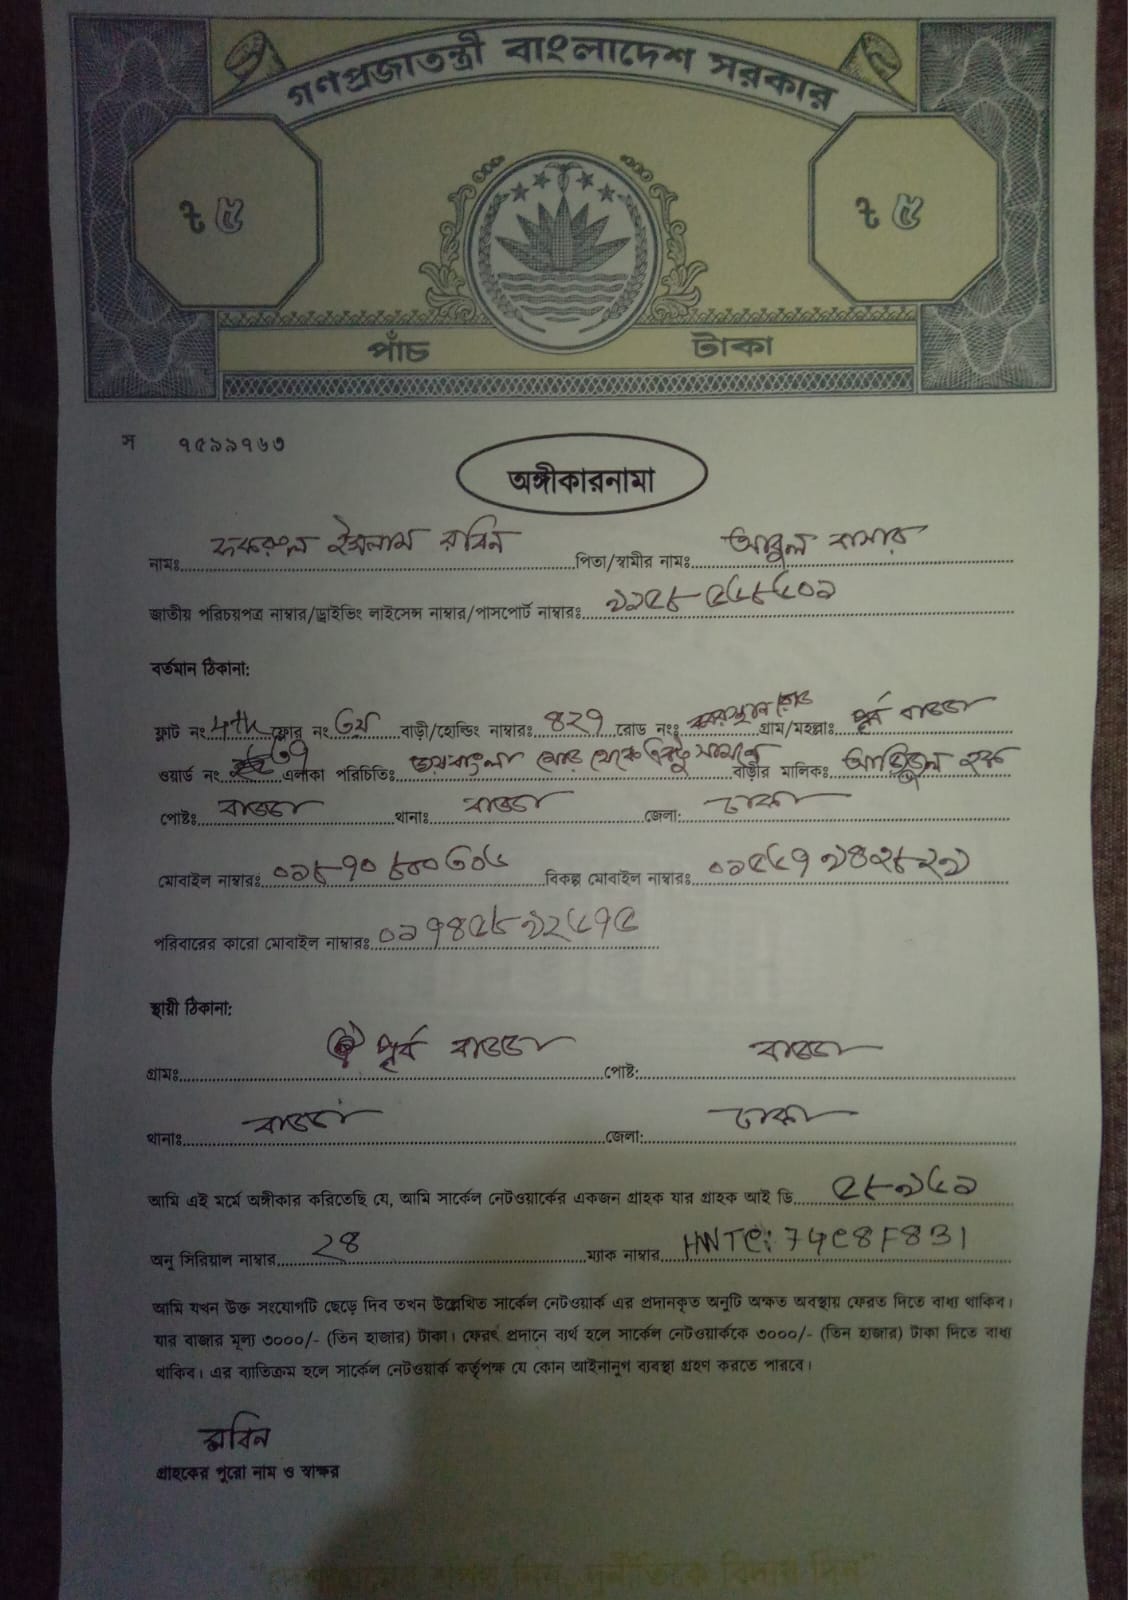 গণপ্রজাতন্ত্রী বাংলাদেশ সরকার
৳ ৫ ৳ ৫
পাঁচ টাকা
স ৭৫৯৯৭৬৩
অঙ্গীকারনামা
নামঃ ফকরুল ইসলাম রবিন পিতা/স্বামীর নামঃ আবুল বাসার
জাতীয় পরিচয়পত্র নাম্বার/ড্রাইভিং লাইসেন্স নাম্বার/পাসপোর্ট নাম্বারঃ
বর্তমান ঠিকানা:
ফ্লাট নং 4th ফ্লোর নং ৩য় বাড়ী/হোল্ডিং নাম্বারঃ ৪২৭ রোড নংঃ কবরস্থান রোড গ্রাম/মহল্লাঃ পূর্ব বাড্ডা
ওয়ার্ড নং ৩৭ এলাকা পরিচিতিঃ জয়বাংলা মোড় থেকে একটু সামনে বাড়ীর মালিকঃ হক
পোষ্টঃ বাড্ডা থানাঃ বাড্ডা জেলা: ঢাকা
মোবাইল নাম্বারঃ ০১৮৭০৮০০৩০৬ বিকল্প মোবাইল নাম্বারঃ ০১৫৬৭৯৪২৮২৯
পরিবারের কারো মোবাইল নাম্বারঃ ০১৭৪৫৮৯২৬৭৫
স্থায়ী ঠিকানা:
গ্রামঃ পূর্ব বাড্ডা পোষ্ট: বাড্ডা
থানাঃ বাড্ডা জেলা: ঢাকা
আমি এই মর্মে অঙ্গীকার করিতেছি যে, আমি সার্কেল নেটওয়ার্কের একজন গ্রাহক যার গ্রাহক আই ডি ৫৮৯৬১
অনু সিরিয়াল নাম্বার ২৪ ম্যাক নাম্বার HWTC: 74C8F831
আমি যখন উক্ত সংযোগটি ছেড়ে দিব তখন উল্লেখিত সার্কেল নেটওয়ার্ক এর প্রদানকৃত অনুটি অক্ষত অবস্থায় ফেরত দিতে বাধ্য থাকিব।
যার বাজার মূল্য ৩০০০/- (তিন হাজার) টাকা। ফেরৎ প্রদানে ব্যর্থ হলে সার্কেল নেটওয়ার্ককে ৩০০০/- (তিন হাজার) টাকা দিতে বাধ্য
থাকিব। এর ব্যাতিক্রম হলে সার্কেল নেটওয়ার্ক কর্তৃপক্ষ যে কোন আইনানুগ ব্যবস্থা গ্রহণ করতে পারবে।
রবিন
গ্রাহকের পুরো নাম ও স্বাক্ষর
দুর্নীতিকে বিদায় দিন"